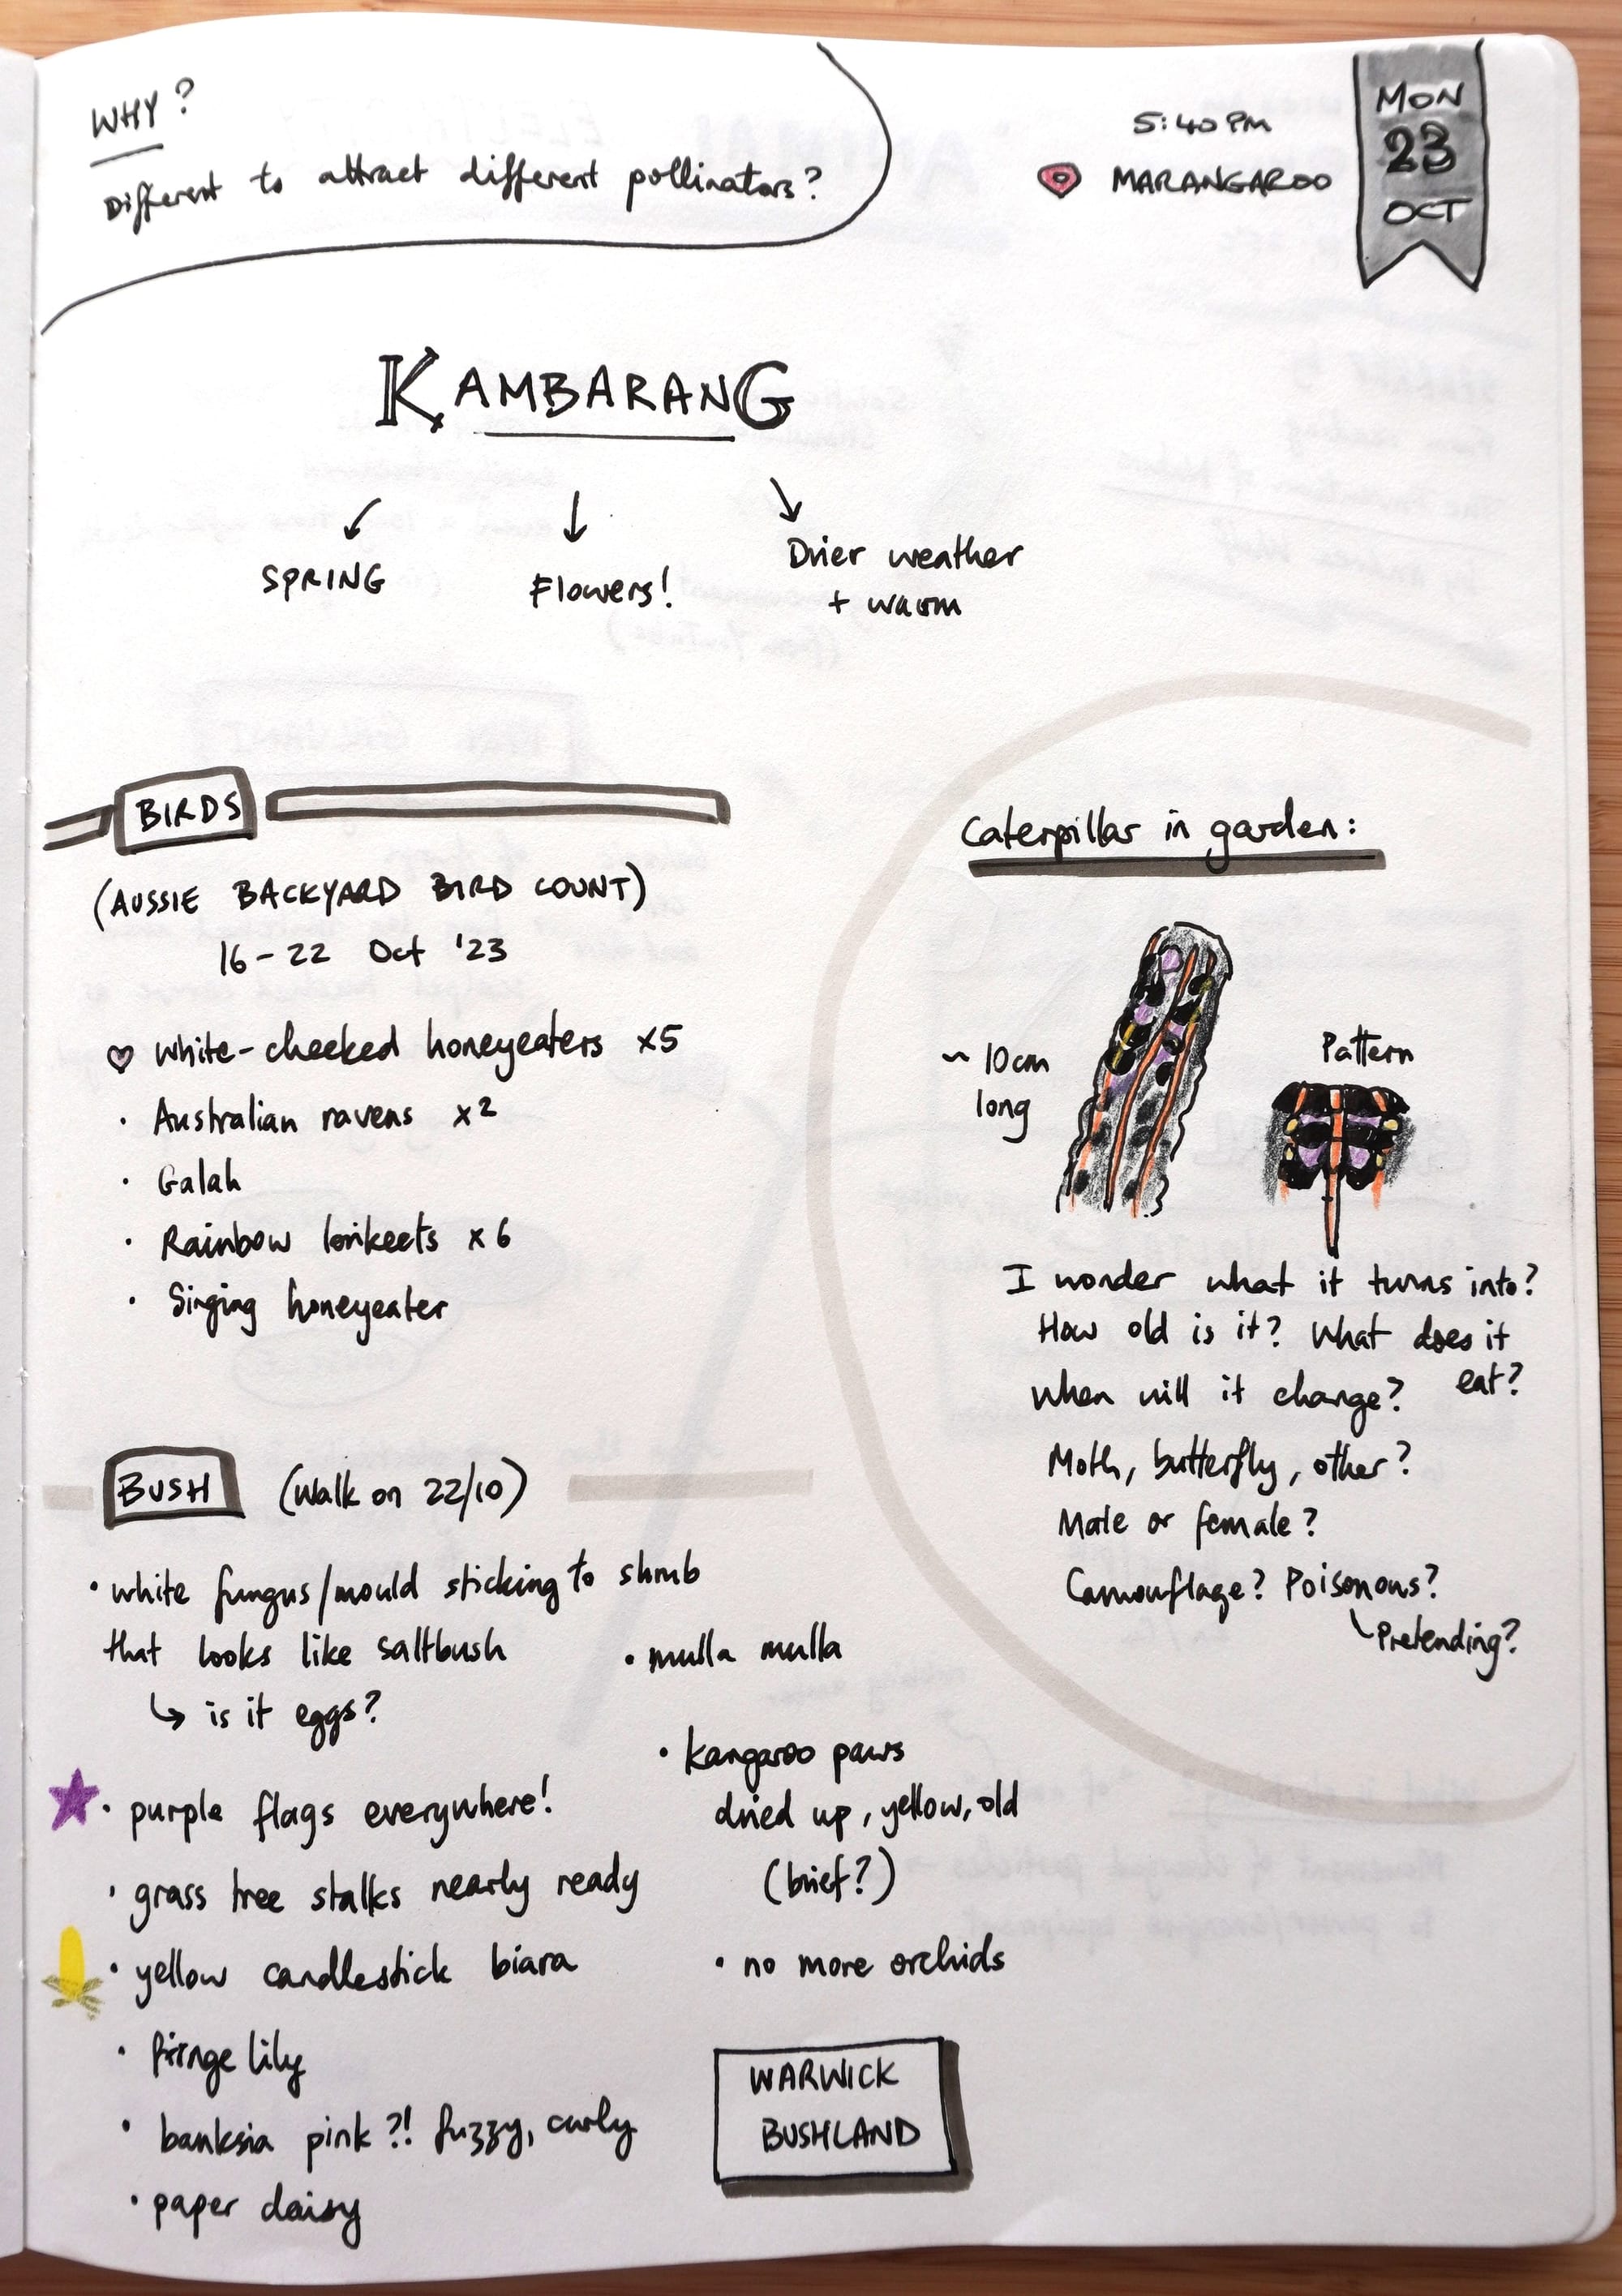 WHY?
Different to attract different pollinators?
5:40 PM
MARANGAROO
MON
23
OCT
KAMBARANG
SPRING
Flowers!
Drier weather
+ warm
BIRDS
(AUSSIE BACKYARD BIRD COUNT)
16-22 Oct '23
White-cheeked honeyeaters x5
• Australian ravens x2
• Galah
• Rainbow lorikeets x6
• Singing honeyeater
Caterpillar in garden:
~ 10cm
long
Pattern
I wonder what it turns into?
How old is it? What does it
eat?
When will it change?
Moth, butterfly, other?
Male or female?
Camouflage? Poisonous?
Pretending?
BUSH (Walk on 22/10)
• white fungus/mould sticking to shrub
that looks like saltbush
↳ is it eggs?
• purple flags everywhere!
• grass tree stalks nearly ready
• yellow candlestick biara
• fringe lily
• banksia pink?! fuzzy, curly
• paper daisy
• mulla mulla
• kangaroo paws
dried up, yellow, old
(brief?)
• no more orchids
WARWICK
BUSHLAND